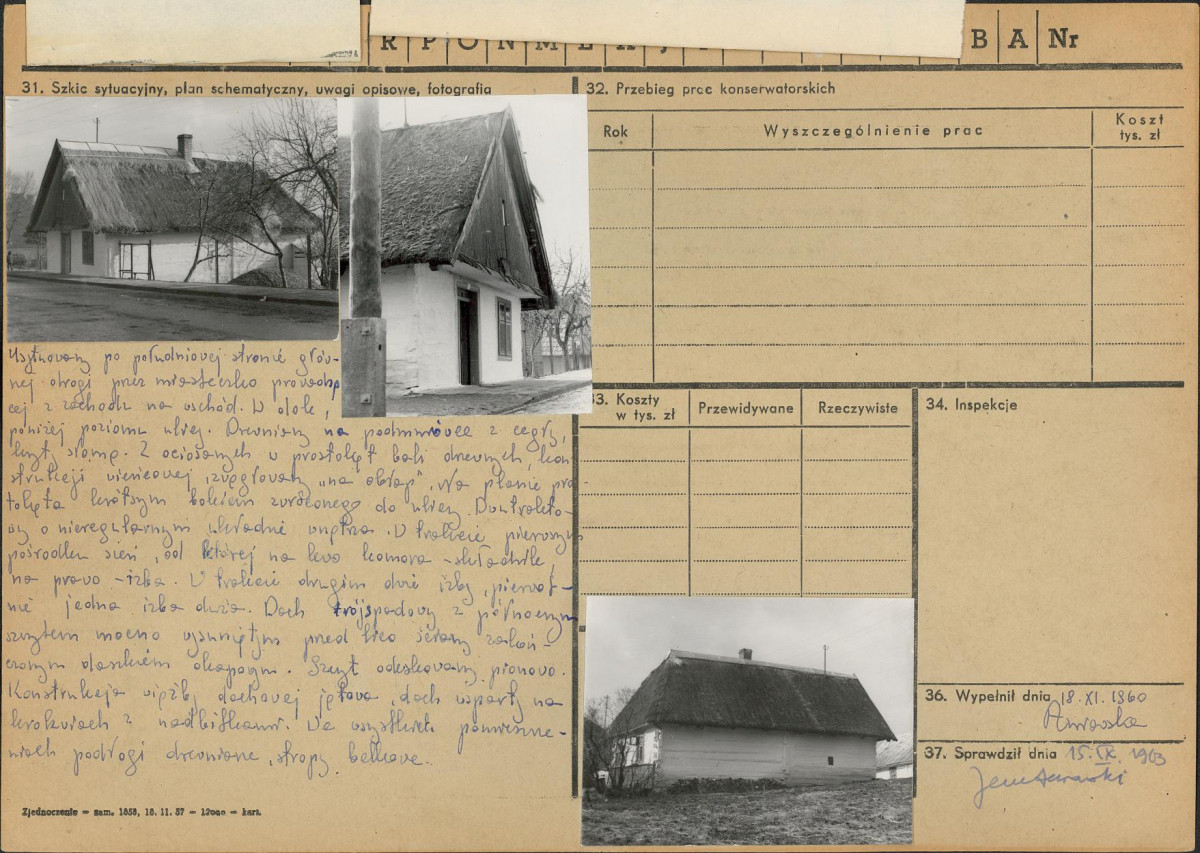 R P O N M L K J I B A Nr
31. Szkic sytuacyjny, plan schematyczny, uwagi opisowe, fotografia
Usytuowany po południowej stronie głów-
nej drogi przez miasteczko prowadzą
cej z zachodu na wschód. W dole,
poniżej poziomu ulicy. Drewniany na podmurówce z cegły,
kryty słomą. Z ociosanych w prostokąt bali drewnianych, kon
strukcji wieńcowej, węgłowany "na obłap". Na planie pro
tokąta krótszym bokiem zwróconego do ulicy. Dwutrakto-
wy o nieregularnym układzie wnętrza. W trakcie pierwszym
pośrodku sień, od której na lewo komora -
na prawo - izba. W trakcie drugim dwie izby, pierwot-
nie jedna izba duża. Dach trójspadowy z północnym
szczytem mocno wysuniętym przed lico ściany zakoń-
czonym daszkiem okapowym. Szczyt odeskowany pionowo.
Konstrukcja więźby dachowej jętkowa, dach wsparty na
krokwiach z nadbitkami. We wszystkich pomieszcze-
niach podłogi drewniane, stropy belkowe.
Zjednoczenie — zam. 1858, 18. 11. 57 — 12000 — kart.
32. Przebieg prac konserwatorskich
Rok
Wyszczególnienie prac
Koszt
tys. zł
33. Koszty
w tys. zł
Przewidywane
Rzeczywiste
34. Inspekcje
36. Wypełnił dnia 18. XI. 1960
37. Sprawdził dnia 15. IX. 1963